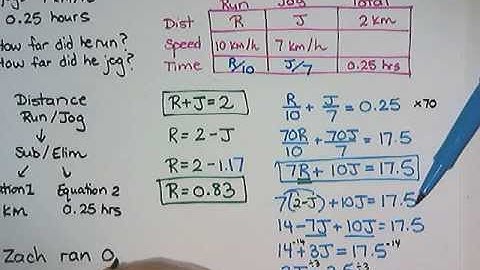 Run Jog Total
0.25 hours
Dist R J 2 km
Speed 10 km/h 7 km/h
How far did he run?
Time R/10 J/7 0.25 hrs
How far did he jog?
Distance
Run/Jog
Sub/Elim
Equation 2
km 0.25 hrs
Zach ran 0
R+J=2
R = 2-J
R = 2-1.17
R = 0.83
R/10 + J/7 = 0.25 ×70
70R/10 + 70J/7 = 17.5
7R + 10J = 17.5
7(2-J)+10J = 17.5
14-7J+10J = 17.5
14-14+3J = 17.5-14
÷3 ÷3